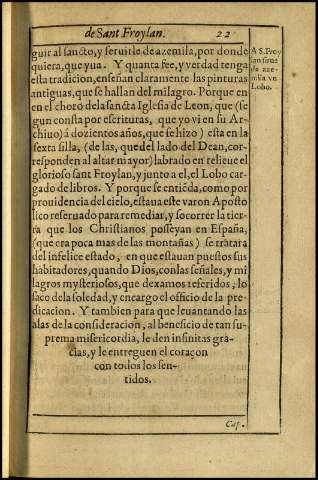 de Sant Froylan. 22
guir al sancto, y seruirle de azemila, por donde
quiera, que yua. Y quanta fee, y verdad tenga
esta tradicion, enseñan claramente las pinturas
antiguas, que se hallan del milagro. Porque en
en el choro de la sancta Iglesia de Leon, que (se
gun consta por escrituras, que yo vi en su Ar-
chiuo) á dozientos años, que se hizo) esta en la
sexta silla, (de las, que del lado del Dean, cor-
responden al altar mayor) labrado en relieue el
glorioso sant Froylan, y junto a el, el Lobo car-
gado de libros. Y porque se entiẽda, como por
prouidencia del cielo, estaua este varon Aposto
lico reseruado para remediar, y socorrer la tier-
ra que los Christianos posseyan en España,
(que era poca mas de las montañas) se tratara
del infelice estado, en que estauan puestos sus
habitadores, quando Dios, con las señales, y mi
lagros mysteriosos, que dexamos referidos, lo
saco de la soledad, y encargo el officio de la pre-
dicacion. Y tambien para que leuantando las
alas de la consideracion, al beneficio de tan su-
prema misericordia, le den infinitas gra-
cias, y le entreguen el coraçon
con todos los sen-
tidos.
Cap.
A S. Froy
lan sirue
de aze-
mila vn
Lobo.